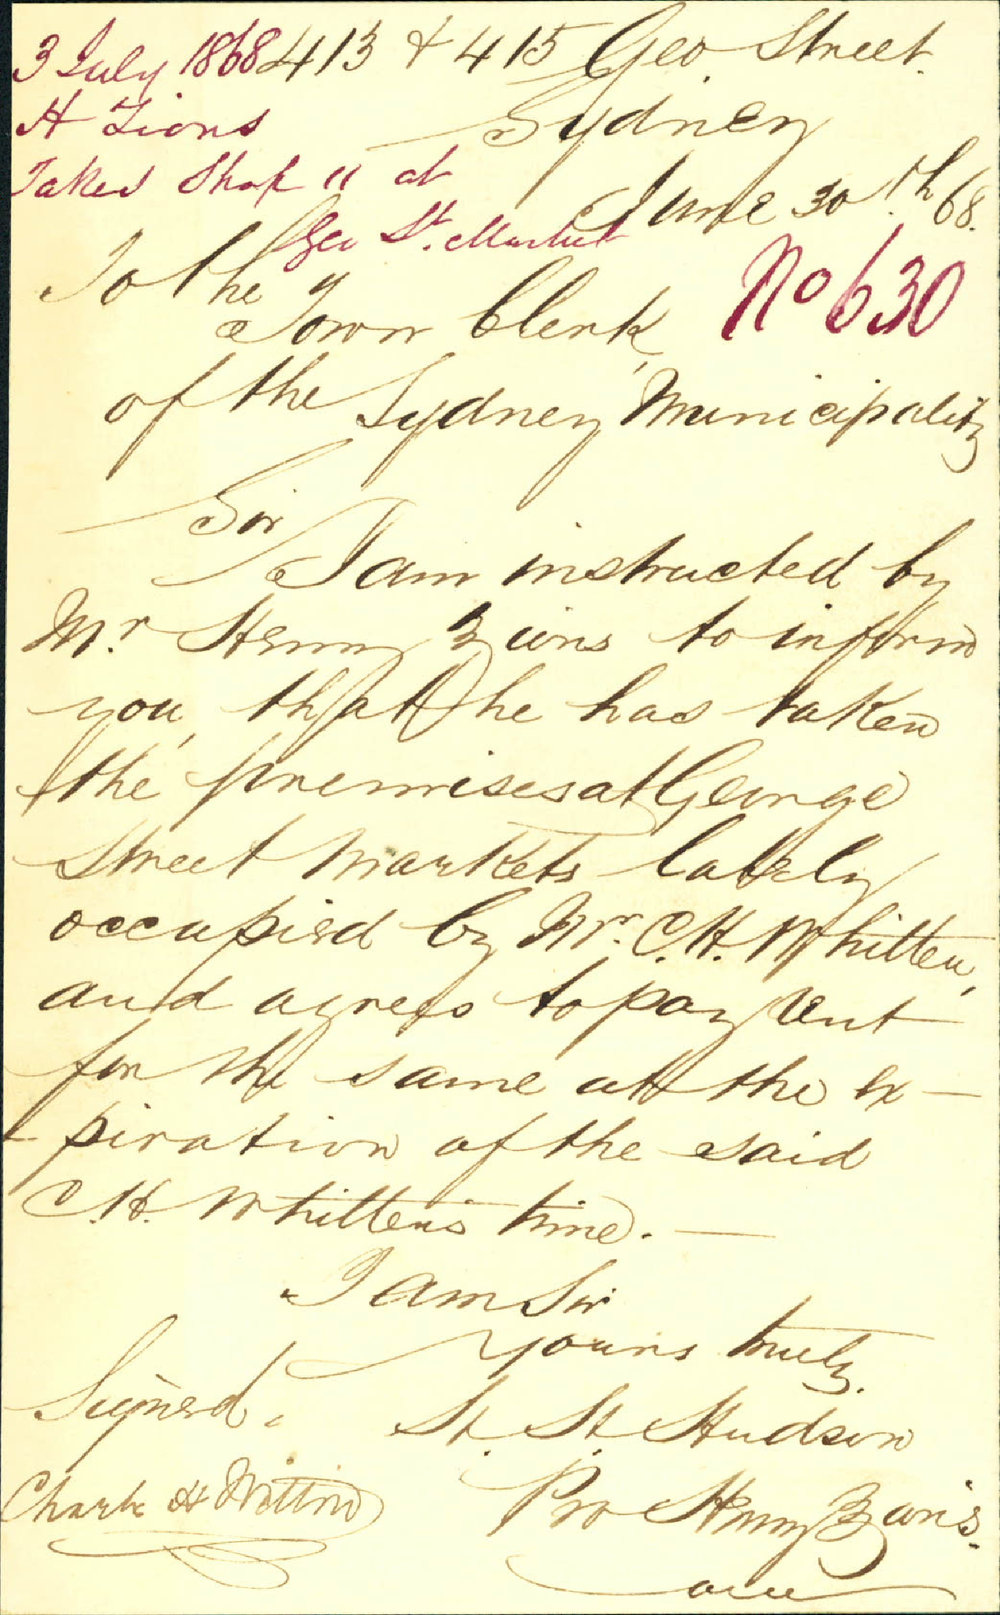 3 July 1868
H Zions
Takes Shop 11 at
Geo St. Market
413 & 415 Geo. Street.
Sydney
June 30th. 68.
No 630
To the
Town Clerk,
of the Sydney Municipality
Sir
I am instructed by
Mr. Henry Zions to inform
you, that he has taken
the premises at George
Street Markets lately
occupied by Mr. C. H. Whitten,
and agrees to pay rent
for the same at the ex-
piration of the said
C. H. Whitten's time. —
I am Sir
Yours truly.
Signed. St. St Hudson
Charles H Witten Pro Henry Zions.